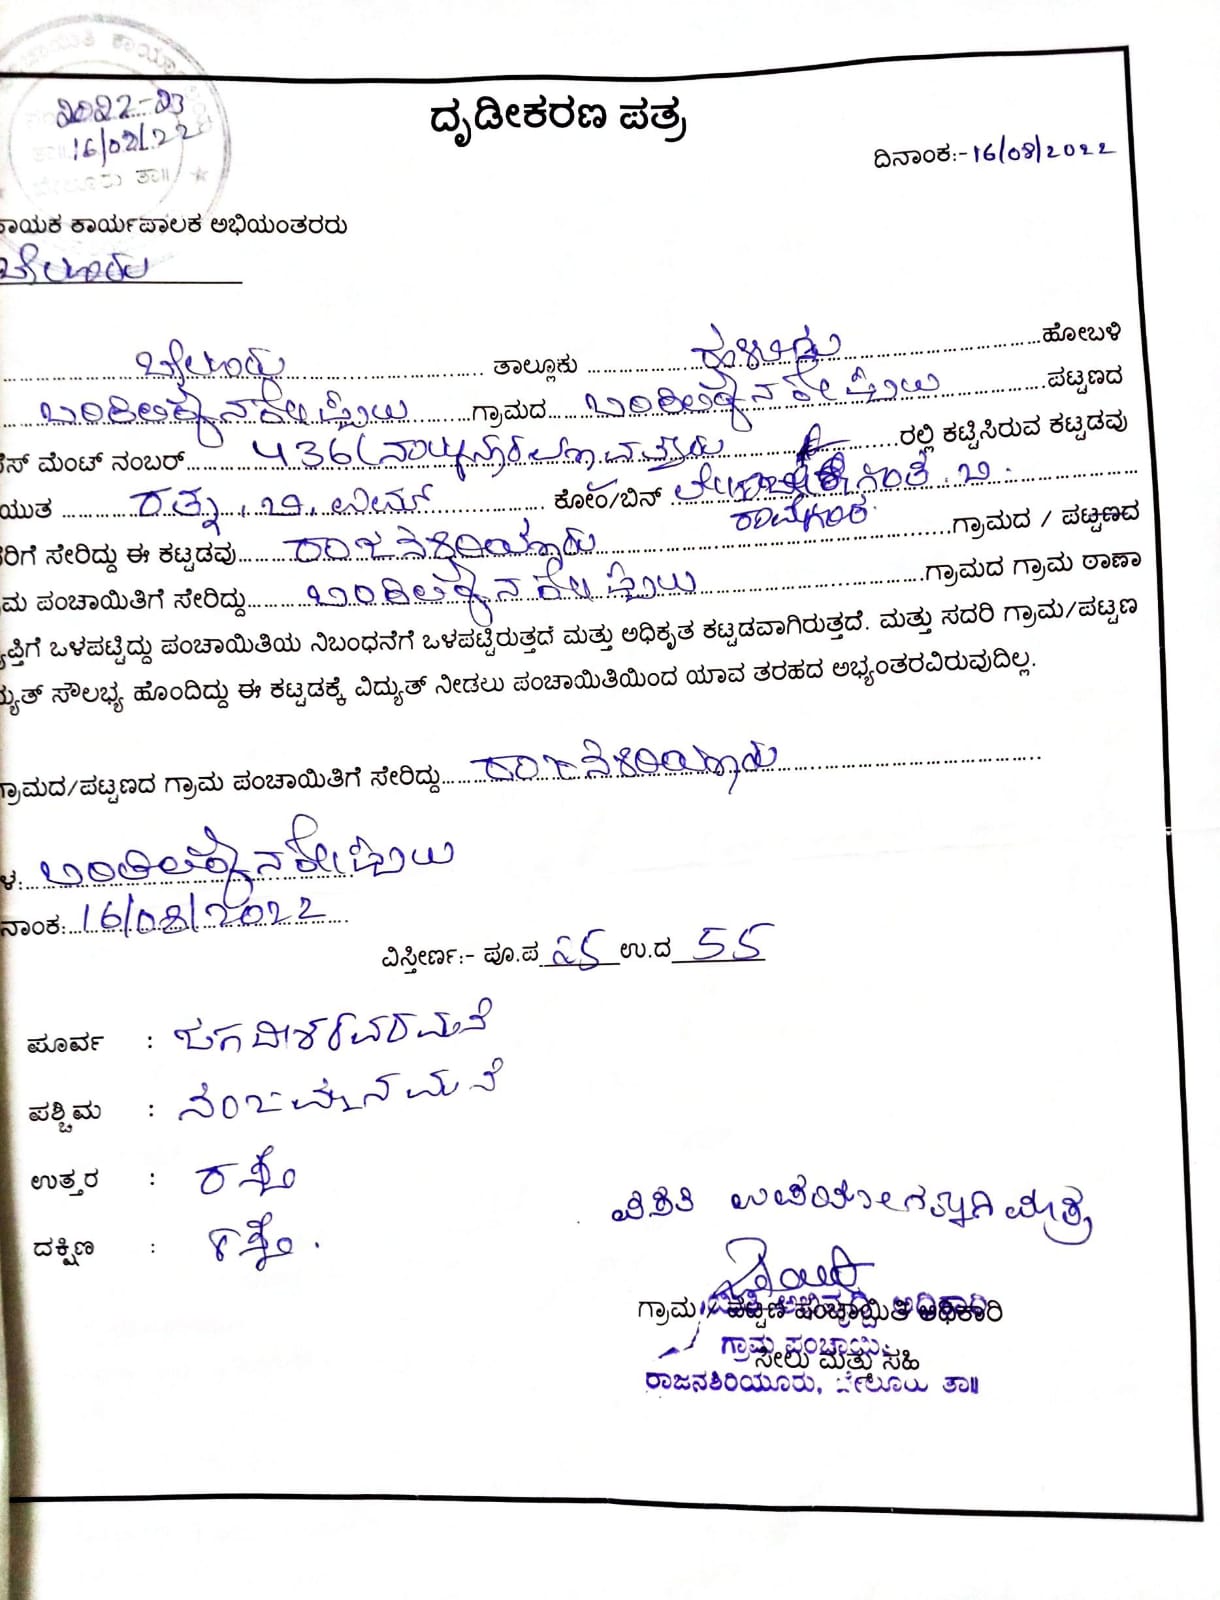 ಪಂಚಾಯಿತಿ ಕಾರ್ಯಾಲಯ
2022-23
16/08/22
ಬೇಲೂರು ತಾ॥
ದೃಡೀಕರಣ ಪತ್ರ
ದಿನಾಂಕ:-16/08/2022
ಾಯಕ ಕಾರ್ಯಪಾಲಕ ಅಭಿಯಂತರರು
ಬೇಲೂರು
ಬೇಲೂರು ತಾಲ್ಲೂಕು ಹಳೇಬೀಡು ಹೋಬಳಿ
ಗ್ರಾಮದ ಪಟ್ಟಣದ
ೆಸ್ ಮೆಂಟ್ ನಂಬರ್ 436 ರಲ್ಲಿ ಕಟ್ಟಿಸಿರುವ ಕಟ್ಟಡವು
ಯುತ ರತ್ನ. ಬಿ. ಕೋಂ/ಬಿನ್
ರಿಗೆ ಸೇರಿದ್ದು ಈ ಕಟ್ಟಡವು ರಾಜನಶಿರಿಯೂರು ಗ್ರಾಮದ / ಪಟ್ಟಣದ
ಮ ಪಂಚಾಯಿತಿಗೆ ಸೇರಿದ್ದು ಗ್ರಾಮದ ಗ್ರಾಮ ಠಾಣಾ
ಪ್ತಿಗೆ ಒಳಪಟ್ಟಿದ್ದು ಪಂಚಾಯಿತಿಯ ನಿಬಂಧನೆಗೆ ಒಳಪಟ್ಟಿರುತ್ತದೆ ಮತ್ತು ಅಧಿಕೃತ ಕಟ್ಟಡವಾಗಿರುತ್ತದೆ. ಮತ್ತು ಸದರಿ ಗ್ರಾಮ/ಪಟ್ಟಣ
ದ್ಯುತ್ ಸೌಲಭ್ಯ ಹೊಂದಿದ್ದು ಈ ಕಟ್ಟಡಕ್ಕೆ ವಿದ್ಯುತ್ ನೀಡಲು ಪಂಚಾಯಿತಿಯಿಂದ ಯಾವ ತರಹದ ಅಭ್ಯಂತರವಿರುವುದಿಲ್ಲ.
ಗ್ರಾಮದ/ಪಟ್ಟಣದ ಗ್ರಾಮ ಪಂಚಾಯಿತಿಗೆ ಸೇರಿದ್ದು ರಾಜನಶಿರಿಯೂರು
ಳ:
ನಾಂಕ: 16/08/2022
ವಿಸ್ತೀರ್ಣ:- ಪೂ.ಪ 25 ಉ.ದ 55
ಪೂರ್ವ : ಜಗದೀಶರವರ ಮನೆ
ಪಶ್ಚಿಮ : ನಂಜಮ್ಮನ ಮನೆ
ಉತ್ತರ : ರಸ್ತೆ
ದಕ್ಷಿಣ : ರಸ್ತೆ.
ವಿ.ಶಕ್ತಿ ಉಪಯೋಗಕ್ಕಾಗಿ ಮಾತ್ರ
ಗ್ರಾಮ / ಪಟ್ಟಣ ಪಂಚಾಯಿತಿ ಅಧಿಕಾರಿ
ಗ್ರಾಮ ಪಂಚಾಯಿತಿ
ಸೀಲು ಮತ್ತು ಸಹಿ
ರಾಜನಶಿರಿಯೂರು, ಬೇಲೂರು ತಾ॥